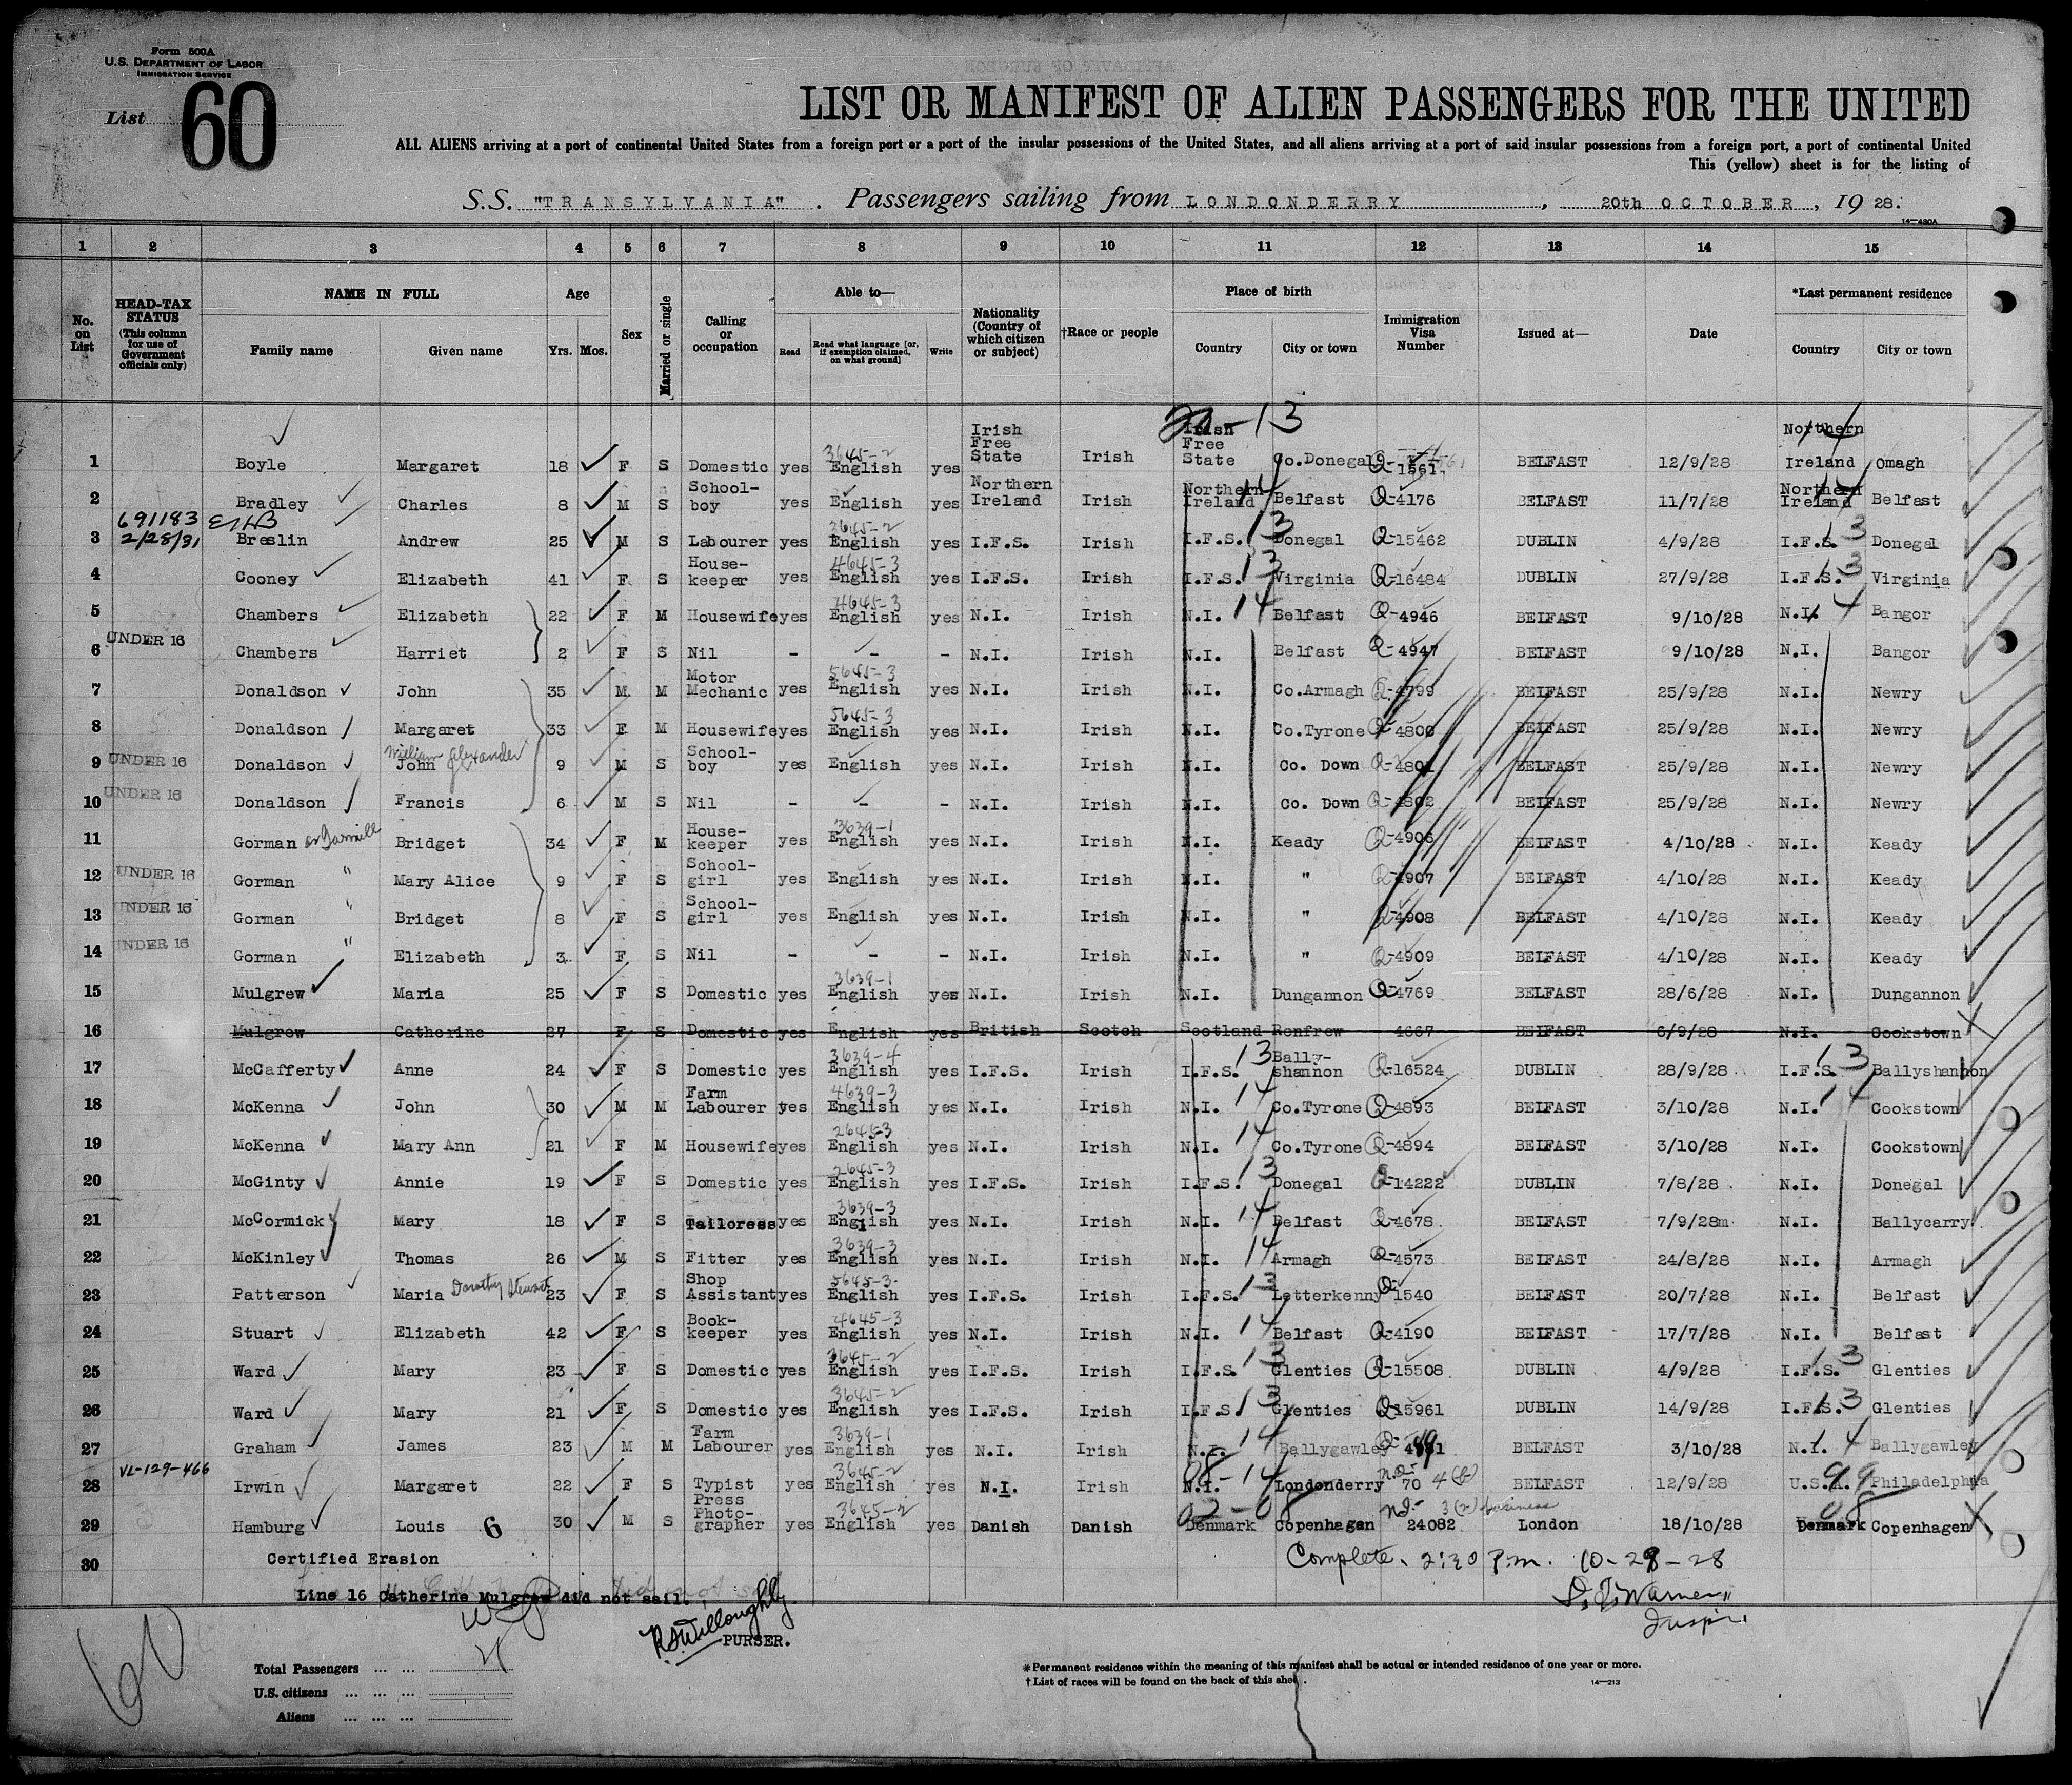 Form 500A
U.S. DEPARTMENT OF LABOR
IMMIGRATION SERVICE
List 60
LIST OR MANIFEST OF ALIEN PASSENGERS FOR THE UNITED
ALL ALIENS arriving at a port of continental United States from a foreign port or a port of the insular possessions of the United States, and all aliens arriving at a port of said insular possessions from a foreign port, a port of continental United
This (yellow) sheet is for the listing of
S.S. "TRANSYLVANIA". Passengers sailing from LONDONDERRY, 20th OCTOBER, 19 28.
14—480A
1 2 3 4 5 6 7 8 9 10 11 12 13 14 15
No. on List
HEAD-TAX STATUS (This column for use of Government officials only)
NAME IN FULL Family name Given name
Age Yrs. Mos.
Sex
Married or single
Calling or occupation
Able to— Read Read what language [or, if exemption claimed, on what ground] Write
Nationality (Country of which citizen or subject)
†Race or people
Place of birth Country City or town
Immigration Visa Number
Issued at—
Date
*Last permanent residence Country City or town
20-13
1 Boyle Margaret 18 F S Domestic yes 3645-2 English yes Irish Free State Irish Irish Free State Co.Donegal Q-1561 BELFAST 12/9/28 Northern Ireland 14 Omagh
2 Bradley Charles 8 M S School-boy yes English yes Northern Ireland Irish Northern Ireland 14 Belfast Q-4176 BELFAST 11/7/28 Northern Ireland 14 Belfast
3 691183 2/28/31 Breslin Andrew 25 M S Labourer yes 3645-2 English yes I.F.S. Irish I.F.S. 13 Donegal Q-15462 DUBLIN 4/9/28 I.F.S. 3 Donegal
4 Cooney Elizabeth 41 F S House-keeper yes 4645-3 English yes I.F.S. Irish I.F.S. 13 Virginia Q-16484 DUBLIN 27/9/28 I.F.S. 13 Virginia
5 Chambers Elizabeth 22 F M Housewife yes 4645-3 English yes N.I. Irish N.I. 14 Belfast Q-4946 BELFAST 9/10/28 N.I. 14 Bangor
6 UNDER 16 Chambers Harriet 2 F S Nil - - - N.I. Irish N.I. Belfast Q-4947 BELFAST 9/10/28 N.I. Bangor
7 Donaldson John 35 M M Motor Mechanic yes 5645-3 English yes N.I. Irish N.I. Co.Armagh Q-4799 BELFAST 25/9/28 N.I. Newry
8 Donaldson Margaret 33 F M Housewife yes 5645-3 English yes N.I. Irish N.I. Co.Tyrone Q-4800 BELFAST 25/9/28 N.I. Newry
9 UNDER 16 Donaldson John William Alexander 9 M S School-boy yes English yes N.I. Irish N.I. Co. Down Q-4801 BELFAST 25/9/28 N.I. Newry
10 UNDER 16 Donaldson Francis 6 M S Nil - - - N.I. Irish N.I. Co. Down Q-4802 BELFAST 25/9/28 N.I. Newry
11 Gorman or Bridget 34 F M House-keeper yes 3639-1 English yes N.I. Irish N.I. Keady Q-4906 BELFAST 4/10/28 N.I. Keady
12 UNDER 16 Gorman " Mary Alice 9 F S School-girl yes English yes N.I. Irish N.I. " Q-4907 BELFAST 4/10/28 N.I. Keady
13 UNDER 16 Gorman " Bridget 8 F S School-girl yes English yes N.I. Irish N.I. " Q-4908 BELFAST 4/10/28 N.I. Keady
14 UNDER 16 Gorman " Elizabeth 3 F S Nil - - - N.I. Irish N.I. " Q-4909 BELFAST 4/10/28 N.I. Keady
15 Mulgrew Maria 25 F S Domestic yes 3639-1 English yes N.I. Irish N.I. Dungannon Q-4769 BELFAST 28/6/28 N.I. Dungannon
16 Mulgrew Catherine 27 F S Domestic yes English yes British Scotch Scotland Renfrew 4667 BELFAST 6/9/28 N.I. Cookstown
17 McCafferty Anne 24 F S Domestic yes 3639-4 English yes I.F.S. Irish I.F.S. 13 Bally-shannon Q-16524 DUBLIN 28/9/28 I.F.S. 13 Ballyshannon
18 McKenna John 30 M M Farm Labourer yes 4639-3 English yes N.I. Irish N.I. 14 Co.Tyrone Q-4893 BELFAST 3/10/28 N.I. 14 Cookstown
19 McKenna Mary Ann 21 F M Housewife yes 2645-3 English yes N.I. Irish N.I. 14 Co.Tyrone Q-4894 BELFAST 3/10/28 N.I. Cookstown
20 McGinty Annie 19 F S Domestic yes 2645-3 English yes I.F.S. Irish I.F.S. 13 Donegal Q-14222 DUBLIN 7/8/28 N.I. Donegal
21 McCormick Mary 18 F S Tailoress yes 3639-3 English yes N.I. Irish N.I. 14 Belfast Q-4678 BELFAST 7/9/28m N.I. Ballycarry
22 McKinley Thomas 26 M S Fitter yes 3639-3 English yes N.I. Irish N.I. 14 Armagh Q-4573 BELFAST 24/8/28 N.I. Armagh
23 Patterson Maria Dorothy Stewart 23 F S Shop Assistant yes 5645-3 English yes I.F.S. Irish I.F.S. 13 Letterkenny Q-1540 BELFAST 20/7/28 N.I. Belfast
24 Stuart Elizabeth 42 F S Book-keeper yes 4645-3 English yes N.I. Irish N.I. 14 Belfast Q-4190 BELFAST 17/7/28 N.I. Belfast
25 Ward Mary 23 F S Domestic yes 3645-2 English yes I.F.S. Irish I.F.S. 13 Glenties Q-15508 DUBLIN 4/9/28 I.F.S. 13 Glenties
26 Ward Mary 21 F S Domestic yes 3645-2 English yes I.F.S. Irish I.F.S. 13 Glenties Q-15961 DUBLIN 14/9/28 I.F.S. 13 Glenties
27 Graham James 23 M M Farm Labourer yes 3639-1 English yes N.I. Irish N.I. 14 Ballygawley BELFAST 3/10/28 N.I. 14 Ballygawley
28 VL-129-466 Irwin Margaret 22 F S Typist yes 3645-2 English yes N.I. Irish N.I. 08-14 Londonderry 70 BELFAST 12/9/28 U.S.A. 99 Philadelphia
29 Hamburg Louis 6 30 M S Press Photo-grapher yes 3645-2 English yes Danish Danish Denmark 02-08 Copenhagen 24082 3(2) business London 18/10/28 Denmark 08 Copenhagen
30 Certified Erasion
Complete, 2:30 P.m. 10-29-28
Line 16 Catherine Mulgrew did not sail.
R.S. Willoughby
PURSER.
Warner
Inspr.
60
Total Passengers ... ...
U.S. citizens ... ... ...
Aliens ... ... ...
*Permanent residence within the meaning of this manifest shall be actual or intended residence of one year or more.
†List of races will be found on the back of this sheet.
14—213